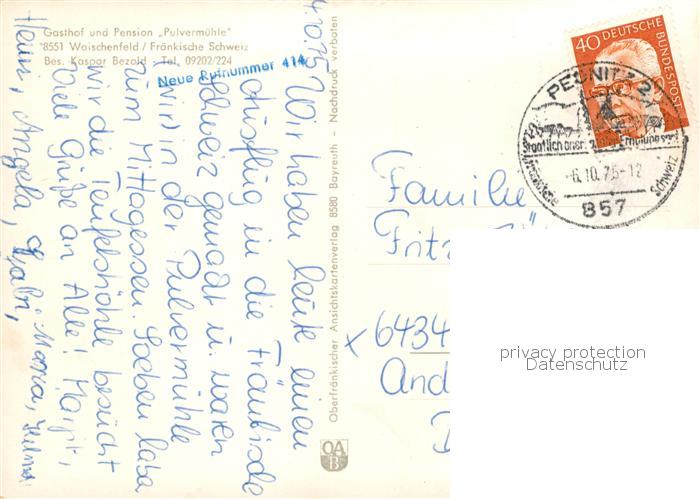 Gasthof und Pension „Pulvermühle"
8551 Waischenfeld / Fränkische Schweiz
Bes. Kaspar Bezold Tel. 09202/224
Neue Rufnummer 414
4.10.75
Wir haben heute einen
Ausflug in die Fränkische
Schweiz gemacht u. waren
(wir) in der Pulvermühle
zum Mittagessen. Soeben haba
wir die Teufelshöhle besucht
Viele Grüße an Alle! Margit,
Heini, Angela, Gabi, Maria, Helmut
Oberfränkischer Ansichtskartenverlag 8580 Bayreuth - Nachdruck verboten
OA
B
40 DEUTSCHE
BUNDESPOST
PEGNITZ 2
Staatlich aner. Erholungsort
Fränkische Schweiz
-6.10.75-12
857
Familie
Fritz
x 6434
And
privacy protection
Datenschutz